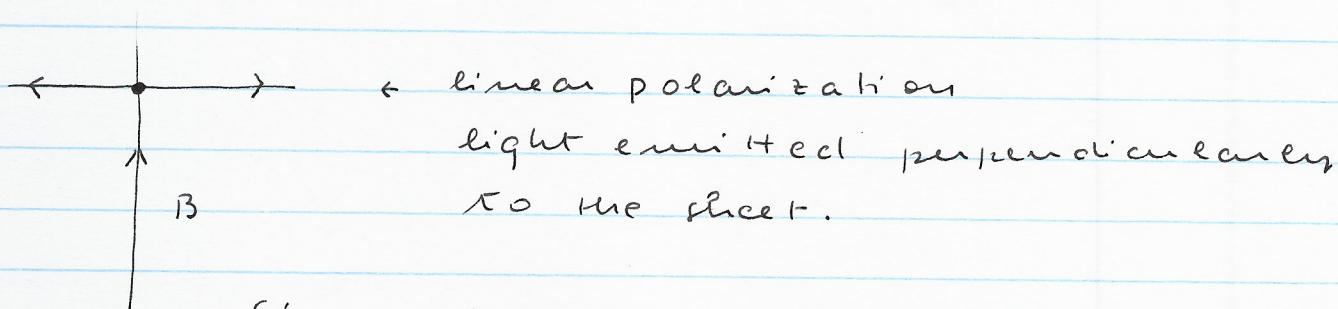 ← linear polarization
light emitted perpendicularly
B
to the sheet.